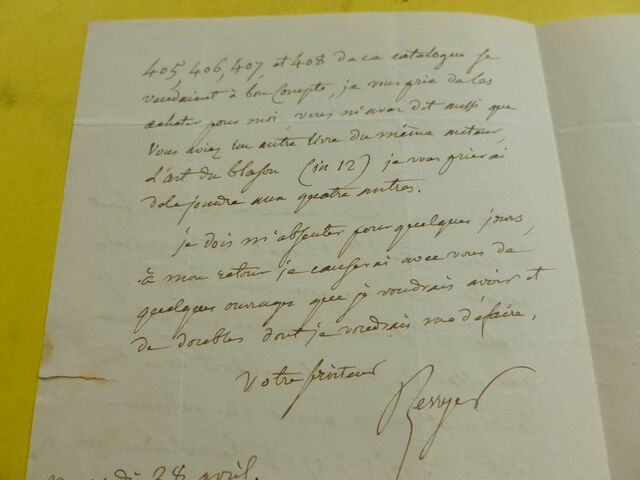 405, 406, 407 et 408 de ce catalogue se
vendaient à bon Compte, je vous prie de les
acheter pour moi, vous m'avez dit aussi que
Vous aviez un autre livre du même auteur,
L'art du blason (in 12) je vous prierai
de le joindre aux quatre autres.
je dois m'absenter pour quelques jours,
à mon retour je causerai avec vous de
quelques ouvrages que je voudrais avoir et
de doubles dont je voudrais me défaire.
Votre serviteur
28 avril.